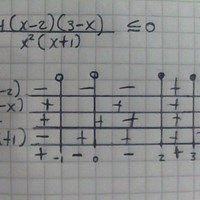 (x-2)(3-x) ≤ 0
x²(x+1)
-2) - - - +
-x) + +
+ +
+1) - + +
+ -1 - 0 - 2 + 3